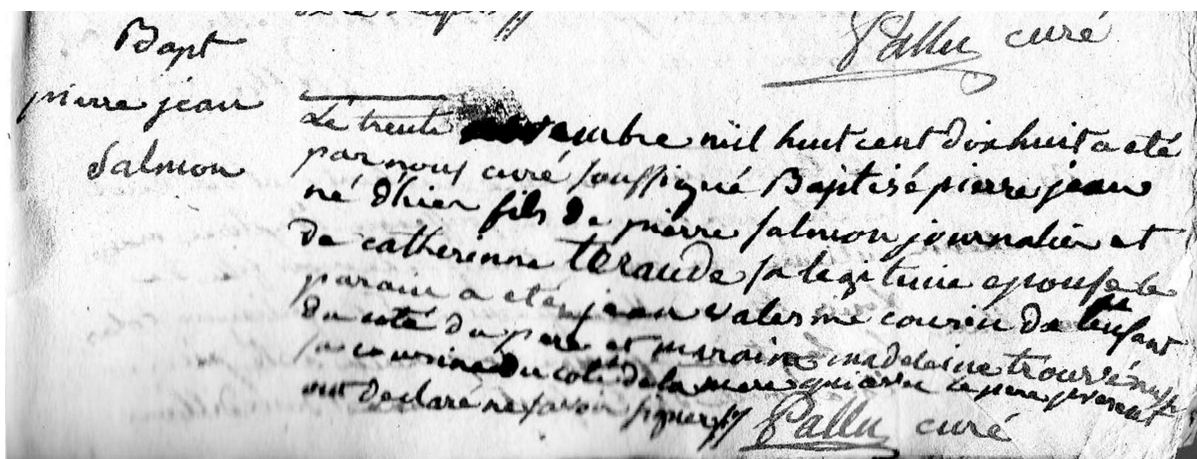 Pallu curé
Bapt
pierre jean
Salmon
Le trente embre mil huit cent dix huit a eté
par nous curé soussigné Baptisé pierre jean
né d'hier fils de pierre salmon journalier et
de catherinne teraude sa legitime epouse le
parain a eté jean valerine cousin de l'enfant
du coté du pere et maraine madeleine
sa cousine du coté de la mere qui avec le pere present
ont declaré ne savoir signer
Pallu curé